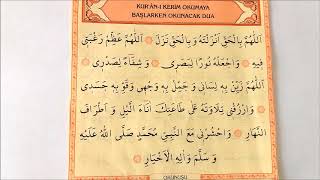 KUR'AN-I KERİM OKUMAYA
BAŞLARKEN OKUNACAK DUA
اَللّٰهُمَّ بِالْحَقِّ اَنْزَلْتَهُ وَ بِالْحَقِّ نَزَلَ ۞ اَللّٰهُمَّ عَظِّمْ رَغْبَتِى
فِيهِ ۞ وَ اجْعَلْهُ نُورًا لِبَصَرِى ۞ وَ شِفَاءً لِصَدْرِى ۞
اَللّٰهُمَّ زَيِّنْ بِهِ لِسَانِى وَ جَمِّلْ بِهِ وَجْهِى وَقَوِّ بِهِ جَسَدِى
وَ ارْزُقْنِى تِلَاوَتَهُ عَلٰى طَاعَتِكَ اٰنَاءَ الَّيْلِ وَ اَطْرَافَ
النَّهَارِ ۞ وَاحْشُرْنِى مَعَ النَّبِىِّ مُحَمَّدٍ صَلَّى اللّٰهُ عَلَيْهِ
وَ سَلَّمَ وَ اٰلِهِ الْاَخْيَارِ ۞
OKUNUŞU